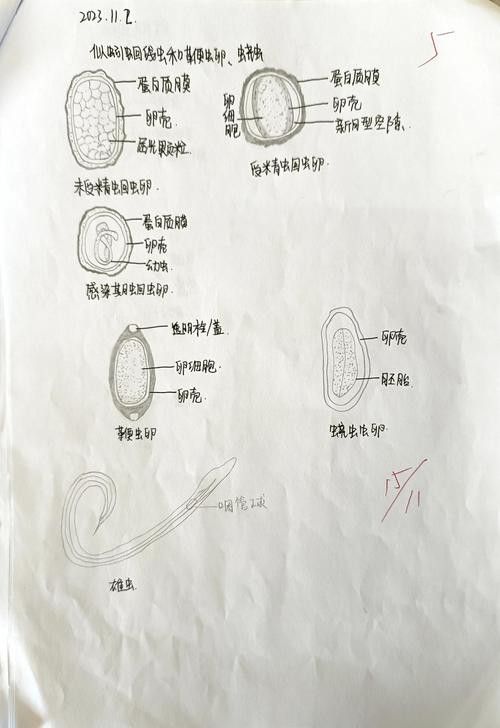 2023.11.2.
似蚓蛔线虫和鞭虫卵、蛲虫
5
蛋白质膜
卵壳
屈光颗粒
未受精蛔虫卵
蛋白质膜
卵壳
新月型空隙
卵细胞
受精蛔虫卵.
蛋白质膜
卵壳
幼虫
感染期蛔虫卵.
透明栓/盖
卵细胞.
卵壳.
鞭虫卵
卵壳
胚胎
蛲虫虫卵.
咽管球
雄虫
15/11